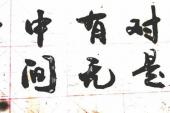 对是
有无
中间